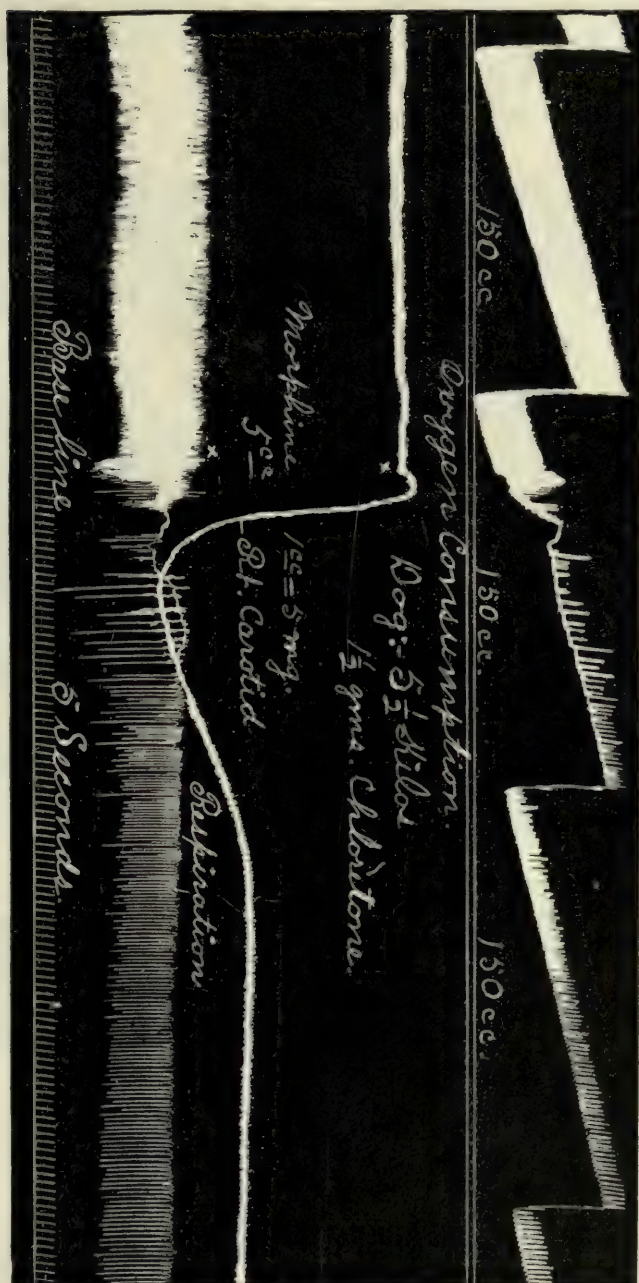 150 cc. 150 cc. 150 cc.
Oxygen Consumption.
Dog:- 5 1/2 Kilos
1 1/2 gms. Chloretone.
Morphine 1cc = 5 mg.
5cc - Rt. Carotid
Respiration
Base line 5 Seconds.